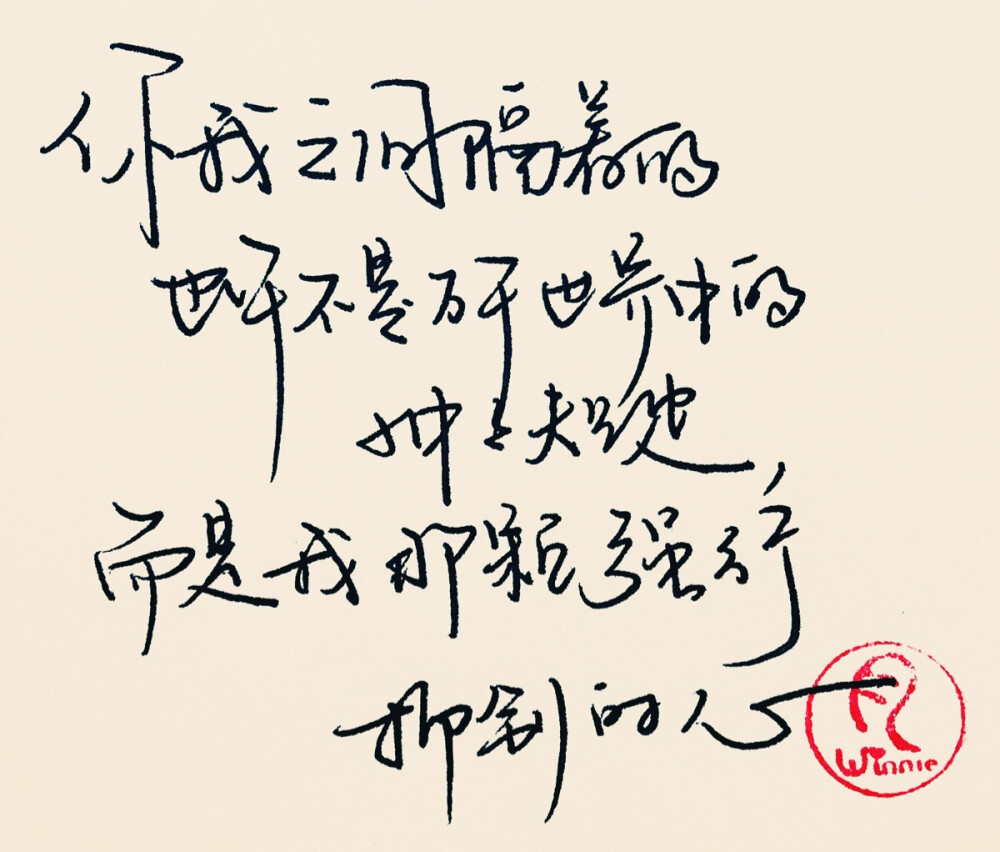 你我之间隔着的
也许不是万千世界中的
种种
而是我那颗强行
抑制的心
Winnie